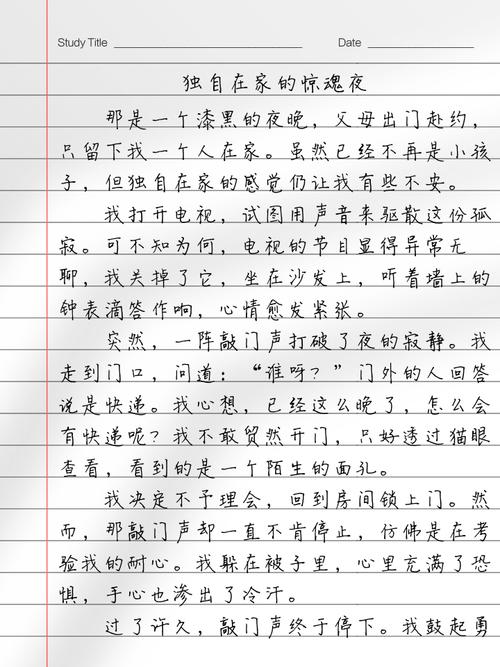 Study Title
Date
独自在家的惊魂夜
那是一个漆黑的夜晚，父母出门赴约，
只留下我一个人在家。虽然已经不再是小孩
子，但独自在家的感觉仍让我有些不安。
我打开电视，试图用声音来驱散这份孤
寂。可不知为何，电视的节目显得异常无
聊，我关掉了它，坐在沙发上，听着墙上的
钟表滴答作响，心情愈发紧张。
突然，一阵敲门声打破了夜的寂静。我
走到门口，问道：“谁呀？”门外的人回答
说是快递。我心想，已经这么晚了，怎么会
有快递呢？我不敢贸然开门，只好透过猫眼
查看，看到的是一个陌生的面孔。
我决定不予理会，回到房间锁上门。然
而，那敲门声却一直不肯停止，仿佛是在考
验我的耐心。我躲在被子里，心里充满了恐
惧，手心也渗出了冷汗。
过了许久，敲门声终于停下。我鼓起勇